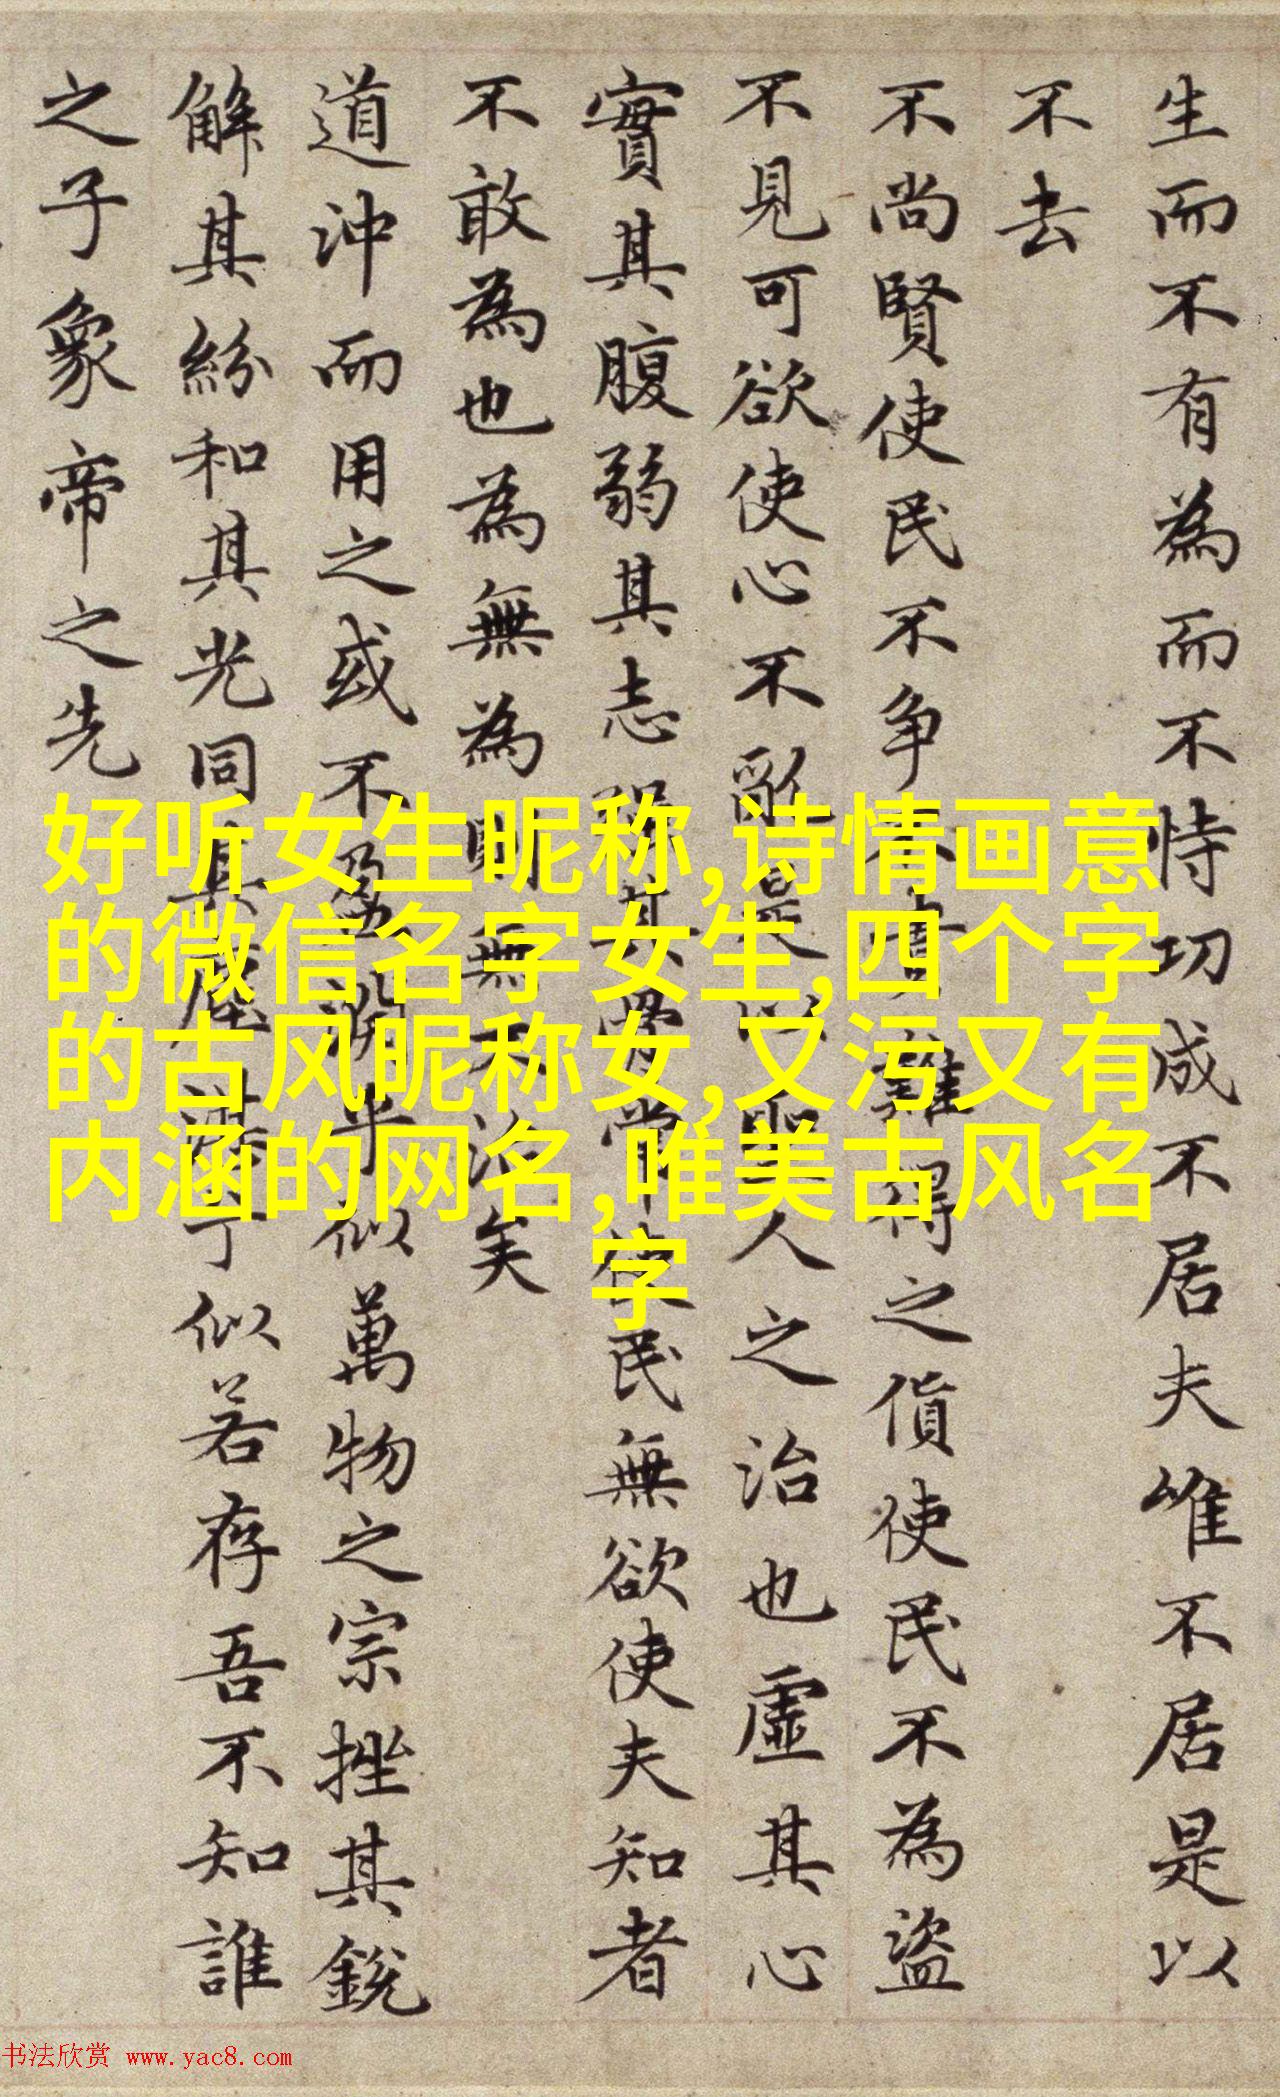 生而不有為而不恃功成不居夫唯不居是以
不去
不尚賢使民不争不貴難得之貨使民不為盜
不見可欲使心不亂是以聖人之治也虛其心
實其腹弱其志強其骨常使民無欲使夫知者
不敢為也為無為則無不治矣
道沖而用之或不盈淵乎似萬物之宗挫其銳
解其紛和其光同其塵湛兮似若存吾不知誰
之子象帝之先
好听女生昵称,诗情画意
的微信名字女生,四个字
的古风昵称女,又污又有
内涵的网名,唯美古风名
字
书法欣赏 www.yac8.com